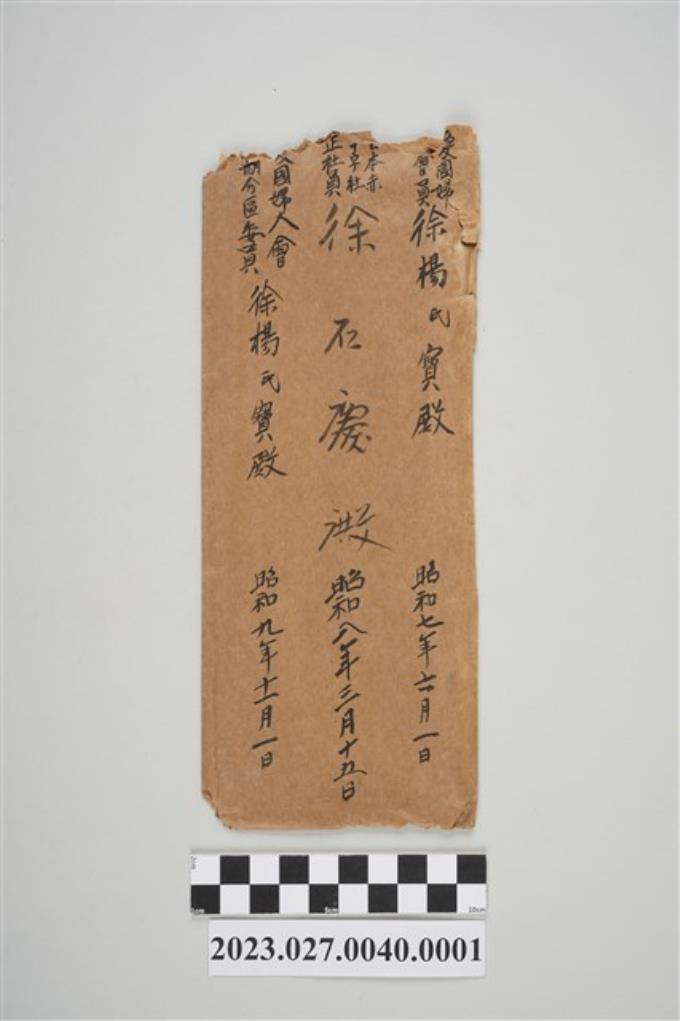 愛國婦
會員
徐楊氏寶殿
昭和七年六月一日
日本赤
十字社
正社員
徐石慶殿
昭和八年三月十五日
愛國婦人會
分區委員
徐楊氏寶殿
昭和九年十一月一日
5cm
10cm
2023.027.0040.0001